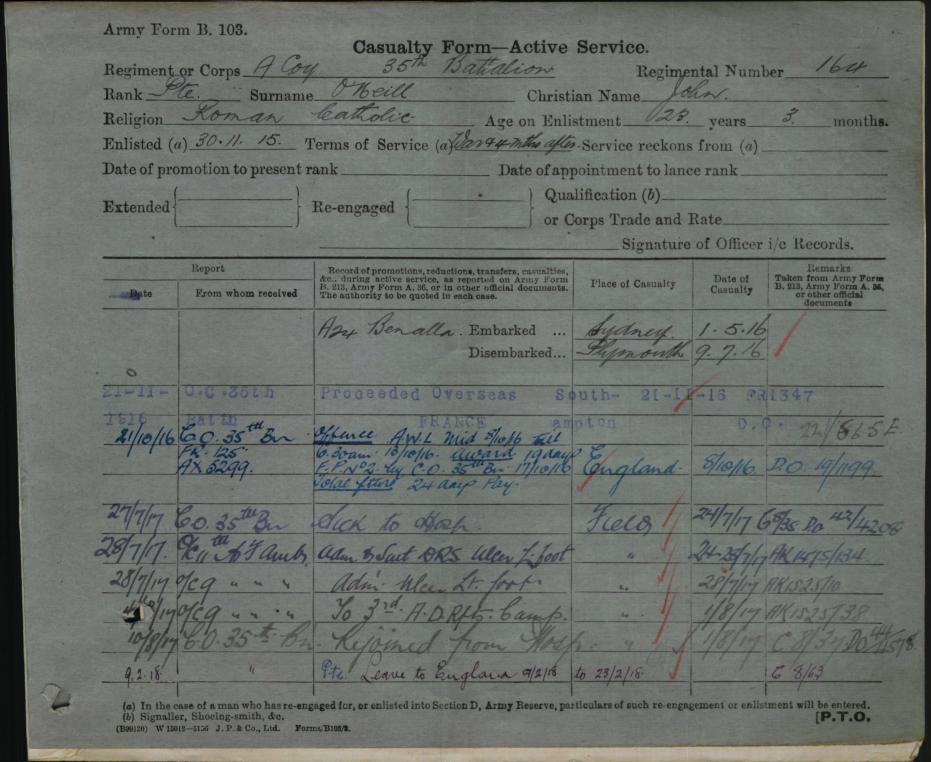 Army Form B. 103.
Casualty Form—Active Service.
Regiment or Corps A Coy 35th Battalion Regimental Number 164
Rank Pte. Surname O'Neill Christian Name John.
Religion Roman Catholic Age on Enlistment 23 years 3 months.
Enlisted (a) 30.11.15. Terms of Service (a) War & 4 mths after. Service reckons from (a)
Date of promotion to present rank Date of appointment to lance rank
Extended Re-engaged Qualification (b)
or Corps Trade and Rate
Signature of Officer i/c Records.
Report
Date From whom received
Record of promotions, reductions, transfers, casualties, &c., during active service, as reported on Army Form B. 213, Army Form A. 36, or in other official documents. The authority to be quoted in each case.
Place of Casualty
Date of Casualty
Remarks
Taken from Army Form B. 213, Army Form A. 36, or other official documents
A24 Benalla. Embarked ... Sydney 1.5.16
Disembarked... Plymouth 9.7.16
21-11- O.C. 35th Proceeded Overseas South- 21-11-16 FR1347
1916 Battn FRANCE ampton D.O.
21/10/16 C.O. 35th Bn Offence A.W.L Mid 8/10/16 till
FR. 125 6.30am. 13/10/16. Award 19 days England 8/10/16 D.O. 19/1199.
AX5299. F.P. No 2. by C.O. 35th Bn. 17/10/16
Total 24 days Pay.
27/7/17 C.O. 35th Bn Sick to Hosp. Field 24/7/17
28/7/17. O/C 11th A F Amb. Adm DRS Ulcer foot " 24-25/7/17 AK1475/134
28/7/17 O/C 9 " " " Adm. Ulcer Lt. foot. " 28/7/17 AK1525/10
/17 O/C 9 " " " To 3rd. A.D. Rfts. Camp. " 1/8/17 AK1525/38
10/8/17 C.O. 35th Bn. Rejoined from Hosp. " 1/8/17
9.2.18. " Pte. Leave to England 9/2/18 to 23/2/18. C 8/63
(a) In the case of a man who has re-engaged for, or enlisted into Section D, Army Reserve, particulars of such re-engagement or enlistment will be entered.
(b) Signaller, Shoeing-smith, &c.
[P.T.O.
J. P. & Co., Ltd.